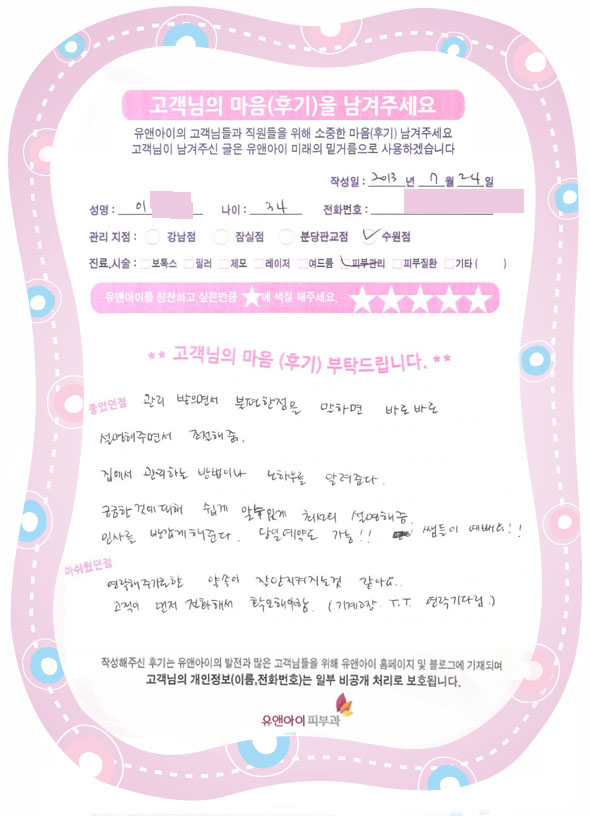 고객님의 마음(후기)을 남겨주세요
유앤아이의 고객님들과 직원들을 위해 소중한 마음(후기) 남겨주세요
고객님이 남겨주신 글은 유앤아이 미래의 밑거름으로 사용하겠습니다
작성일 : 2013 년 7 월 24 일
성명 : 이 나이 : 34 전화번호 :
관리 지점 : 강남점 잠실점 분당판교점 수원점
진료,시술 : 보톡스 필러 제모 레이저 여드름 피부관리 피부질환 기타 ( )
유앤아이를 칭찬하고 싶은만큼 ★에 색칠 해주세요. ★★★★★
** 고객님의 마음 (후기) 부탁드립니다. **
좋았던점 관리 받으면서 불편한점을 말하면 바로바로
설명해주면서 조절해줌.
집에서 관리하는 방법이나 노하우를 알려준다.
궁금한것에대해 쉽게 알수있게 최선의 설명해줌.
인사를 반갑게해준다. 당일예약도 가능!! 쌤들이 예뻐요!!
아쉬웠던점
연락해주기로한 약속이 잘안지켜지는것 같아요..
고객이 먼저 전화해서 확인해야함. (기계고장 T.T 연락기다림.)
작성해주신 후기는 유앤아이의 발전과 많은 고객님들을 위해 유앤아이 홈페이지 및 블로그에 기재되며
고객님의 개인정보(이름,전화번호)는 일부 비공개 처리로 보호됩니다.
유앤아이피부과